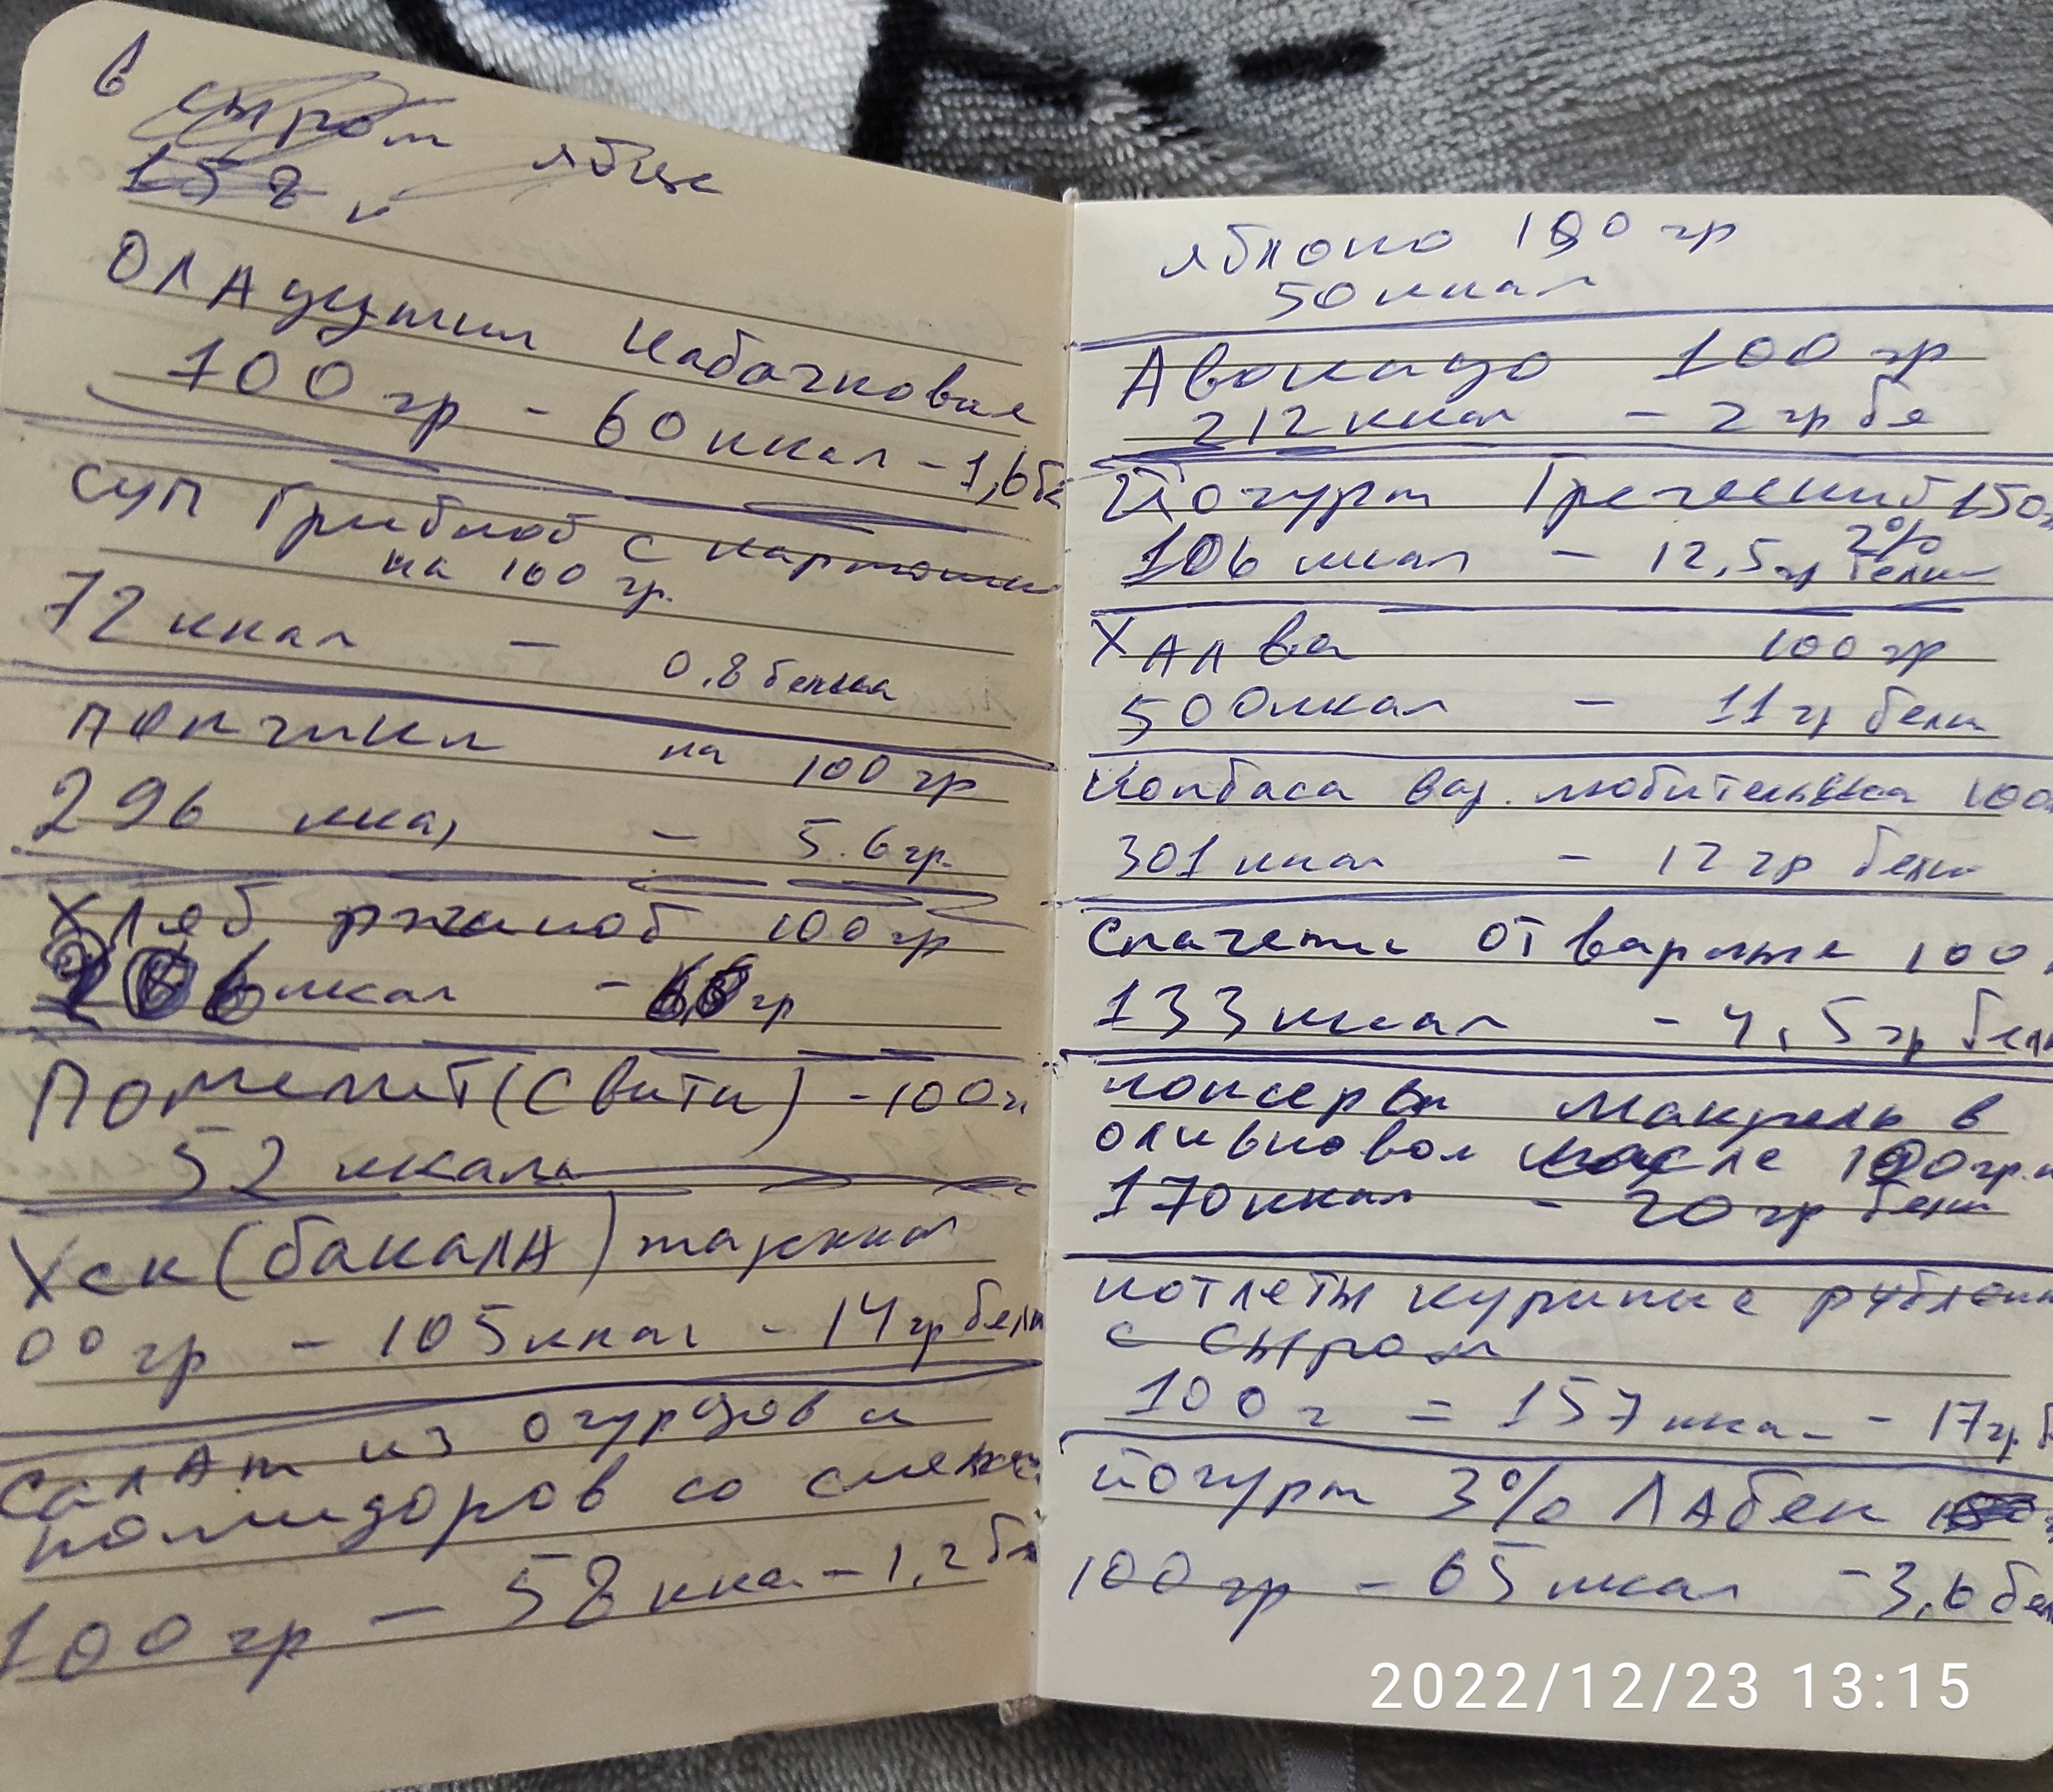 в сыром яйце
15 г
ОЛАдушки кабачковые
100 гр - 60 ккал - 1,6 бе
суп Грибной с картошк
на 100 гр.
72 ккал - 0,8 белка
пончики на 100 гр
296 ккал - 5.6 гр.
Хляб ржаной 100 гр
ккал - гр
Помелит (Свити) - 100 г
52 ккал
Хек (бакалА) жаренный
00 гр - 105 ккал - 14 гр белк
салАт из огурцов и
помидоров со смета
100 гр - 58 ккал - 1,2 бл
яблоко 100 гр
50 ккал
Авокадо 100 гр
212 ккал - 2 гр бе
Йогурт Греческий 150
2%
106 ккал - 12,5 гр белк
ХАлва 100 гр
500 ккал - 11 гр белк
Колбаса вар. любительска 100
301 ккал - 12 гр белк
Спагети отварные 100
133 ккал - 4,5 гр белк
консервы макрель в
оливковом масле 100 гр.
170 ккал - 20 гр белк
котлеты куриные рублены
с сыром
100 г = 157 ккал - 17 гр. б
йогурт 3% ЛАбен
100 гр - 65 ккал - 3,6 бел
2022/12/23 13:15